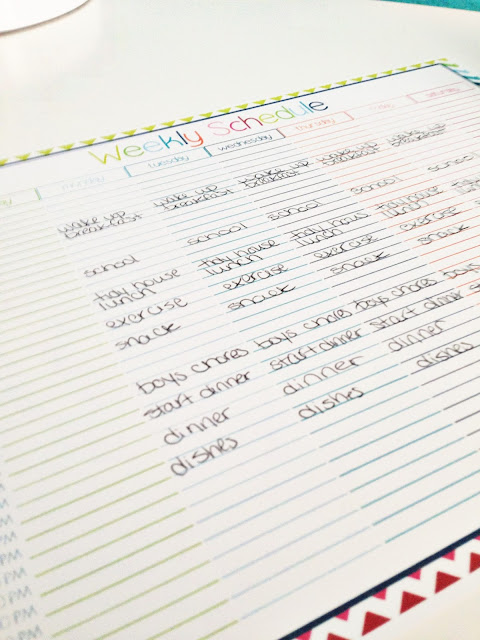 Weekly Schedule
tuesday wednesday thursday friday saturday
wake up wake up wake up wake up wake up
breakfast breakfast breakfast breakfast breakfast
school school school school school
tidy house tidy house tidy hous tidy house tidy
lunch lunch lunch lunch lunch
exercise exercise exercise exercise
snack snack snack snack
boys chores boys chores boys chores boys
start dinner start dinner start dinner
dinner dinner dinner
dishes dishes dishes
PM
PM
PM
PM
PM
PM